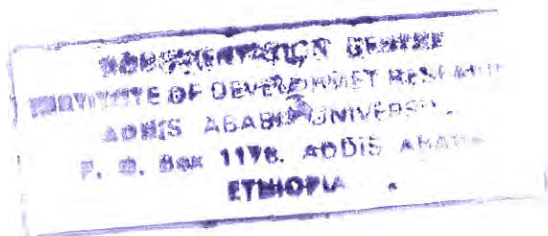 DOCUMENTATION CENTRE
INSTITUTE OF DEVELOPMET RESEARCH
ADDIS ABABA UNIVERSITY
P. O. Box 1176. ADDIS ABABA
ETHIOPIA